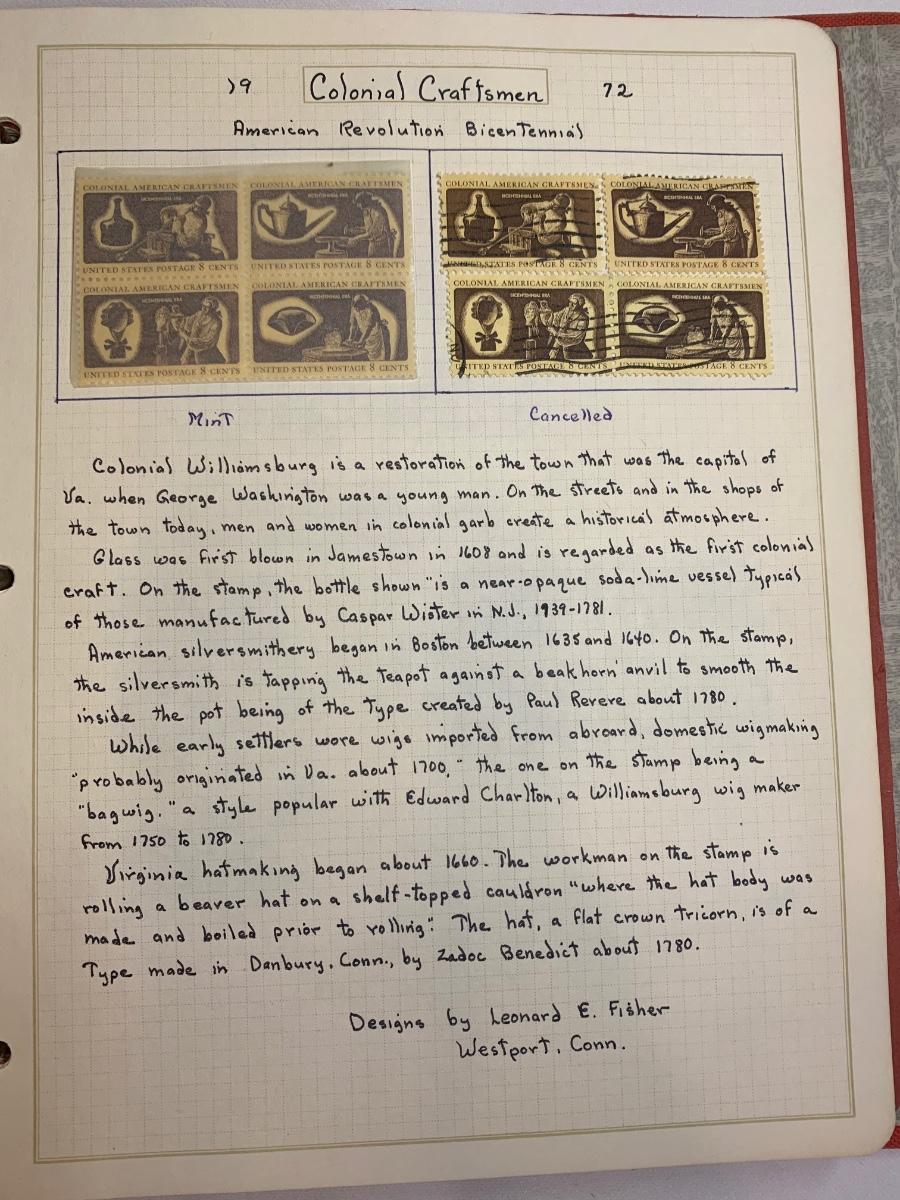 19 Colonial Craftsmen 72
American Revolution Bicentennial
COLONIAL AMERICAN CRAFTSMEN COLONIAL AMERICAN CRAFTSMEN
BICENTENNIAL ERA BICENTENNIAL ERA
UNITED STATES POSTAGE 8 CENTS UNITED STATES POSTAGE 8 CENTS
COLONIAL AMERICAN CRAFTSMEN COLONIAL AMERICAN CRAFTSMEN
BICENTENNIAL ERA BICENTENNIAL ERA
UNITED STATES POSTAGE 8 CENTS UNITED STATES POSTAGE 8 CENTS
COLONIAL AMERICAN CRAFTSMEN COLONIAL AMERICAN CRAFTSMEN
BICENTENNIAL ERA BICENTENNIAL ERA
UNITED STATES POSTAGE 8 CENTS UNITED STATES POSTAGE 8 CENTS
COLONIAL AMERICAN CRAFTSMEN COLONIAL AMERICAN CRAFTSMEN
BICENTENNIAL ERA BICENTENNIAL ERA
UNITED STATES POSTAGE 8 CENTS UNITED STATES POSTAGE 8 CENTS
Mint Cancelled
Colonial Williamsburg is a restoration of the town that was the capital of
Va. when George Washington was a young man. On the streets and in the shops of
the town today, men and women in colonial garb create a historical atmosphere.
Glass was first blown in Jamestown in 1608 and is regarded as the first colonial
craft. On the stamp, the bottle shown "is a near-opaque soda-lime vessel typical
of those manufactured by Caspar Wister in N.J., 1939-1781.
American silversmithery began in Boston between 1635 and 1640. On the stamp,
the silversmith is tapping the teapot against a beakhorn' anvil to smooth the
inside the pot being of the type created by Paul Revere about 1780.
While early settlers wore wigs imported from abroard, domestic wigmaking
"probably originated in Va. about 1700," the one on the stamp being a
"bagwig," a style popular with Edward Charlton, a Williamsburg wig maker
from 1750 to 1780.
Virginia hatmaking began about 1660. The workman on the stamp is
rolling a beaver hat on a shelf-topped cauldron "where the hat body was
made and boiled prior to rolling". The hat, a flat crown tricorn, is of a
type made in Danbury, Conn., by Zadoc Benedict about 1780.
Designs by Leonard E. Fisher
Westport, Conn.